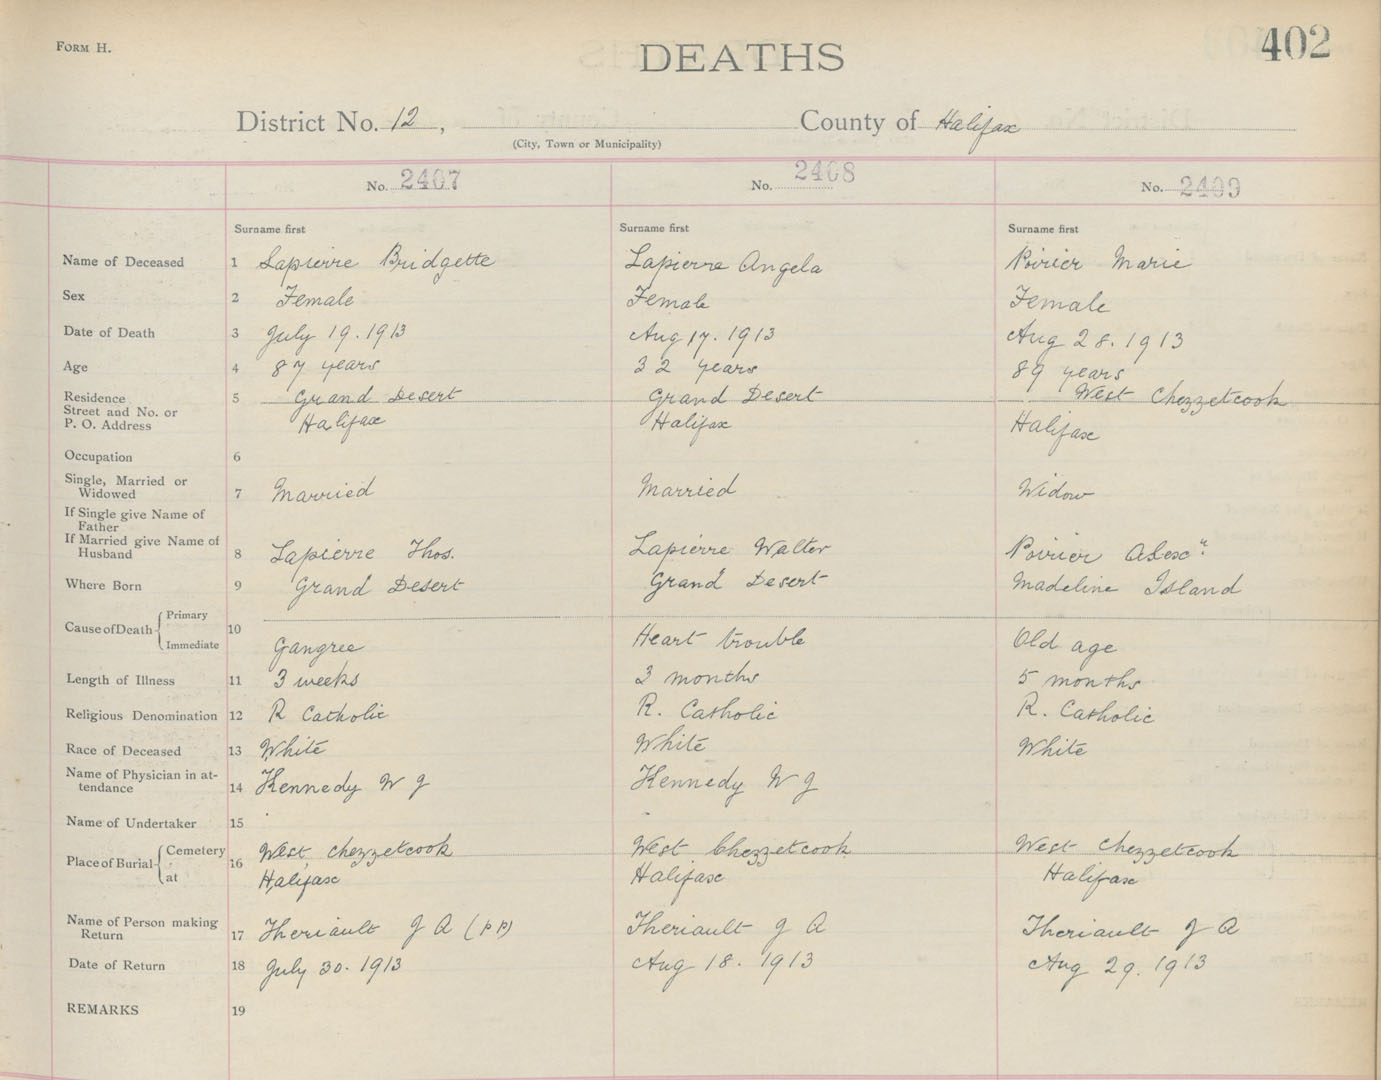 FORM H.
DEATHS
402
District No. 12, County of Halifax
(City, Town or Municipality)
No. 2407 No. 2408 No. 2409
Surname first Surname first Surname first
Name of Deceased 1 Lapierre Bridgette Lapierre Angela Poirier Marie
Sex 2 Female Female Female
Date of Death 3 July 19. 1913 Aug 17. 1913 Aug 28. 1913
Age 4 87 years 32 years 89 years
Residence 5 Grand Desert Grand Desert West Chezzetcook
Street and No. or
P. O. Address Halifax Halifax Halifax
Occupation 6
Single, Married or
Widowed 7 Married Married Widow
If Single give Name of
Father
If Married give Name of
Husband 8 Lapierre Thos. Lapierre Walter Poirier Alexr
Where Born 9 Grand Desert Grand Desert Madeline Island
Cause of Death Primary
10
Immediate Gangree Heart trouble Old age
Length of Illness 11 3 weeks 3 months 5 months
Religious Denomination 12 R Catholic R. Catholic R. Catholic
Race of Deceased 13 White White White
Name of Physician in at-
tendance 14 Kennedy W J Kennedy W J
Name of Undertaker 15
Place of Burial Cemetery 16 West Chezzetcook West Chezzetcook West Chezzetcook
at Halifax Halifax Halifax
Name of Person making
Return 17 Theriault J A (PP) Theriault J A Theriault J A
Date of Return 18 July 30. 1913 Aug 18. 1913 Aug 29. 1913
REMARKS 19